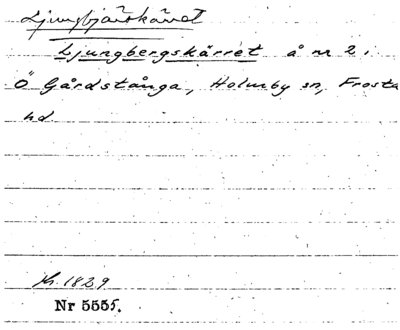 Ljungbjärskärret
Ljungbergskärret å nr 2,
Ö Gårdstånga, Holmby sn, Frosta
hd
1829
Nr 5555.